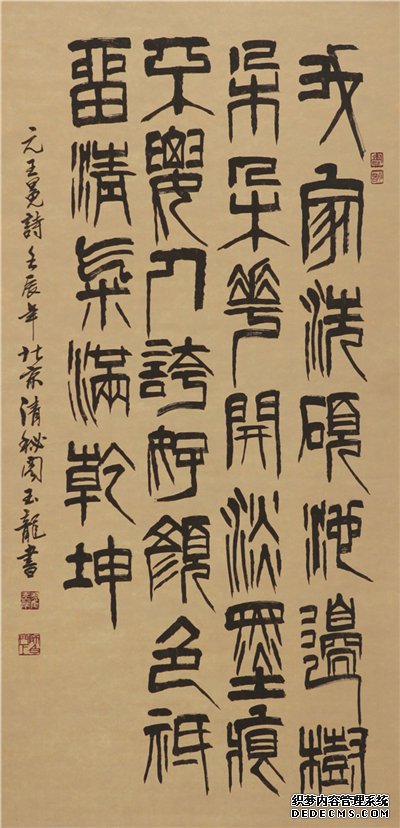 我家洗硯池邊樹
朵朵華開淡墨痕
不要人誇好顏色祗
留清氣滿乾坤
元王冕詩壬辰年北京清秘閣玉龍書
织梦内容管理系统
DEDECMS.COM